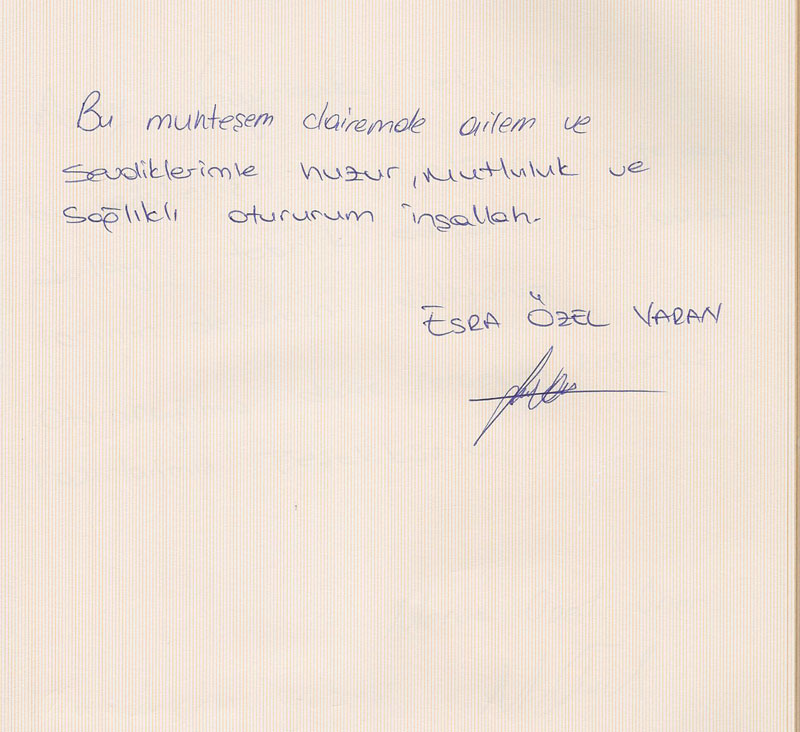 Bu muhteşem dairemde ailem ve
Sevdiklerimle huzur, Mutluluk ve
Sağlıklı otururum inşallah.
ESRA ÖZEL VARAN